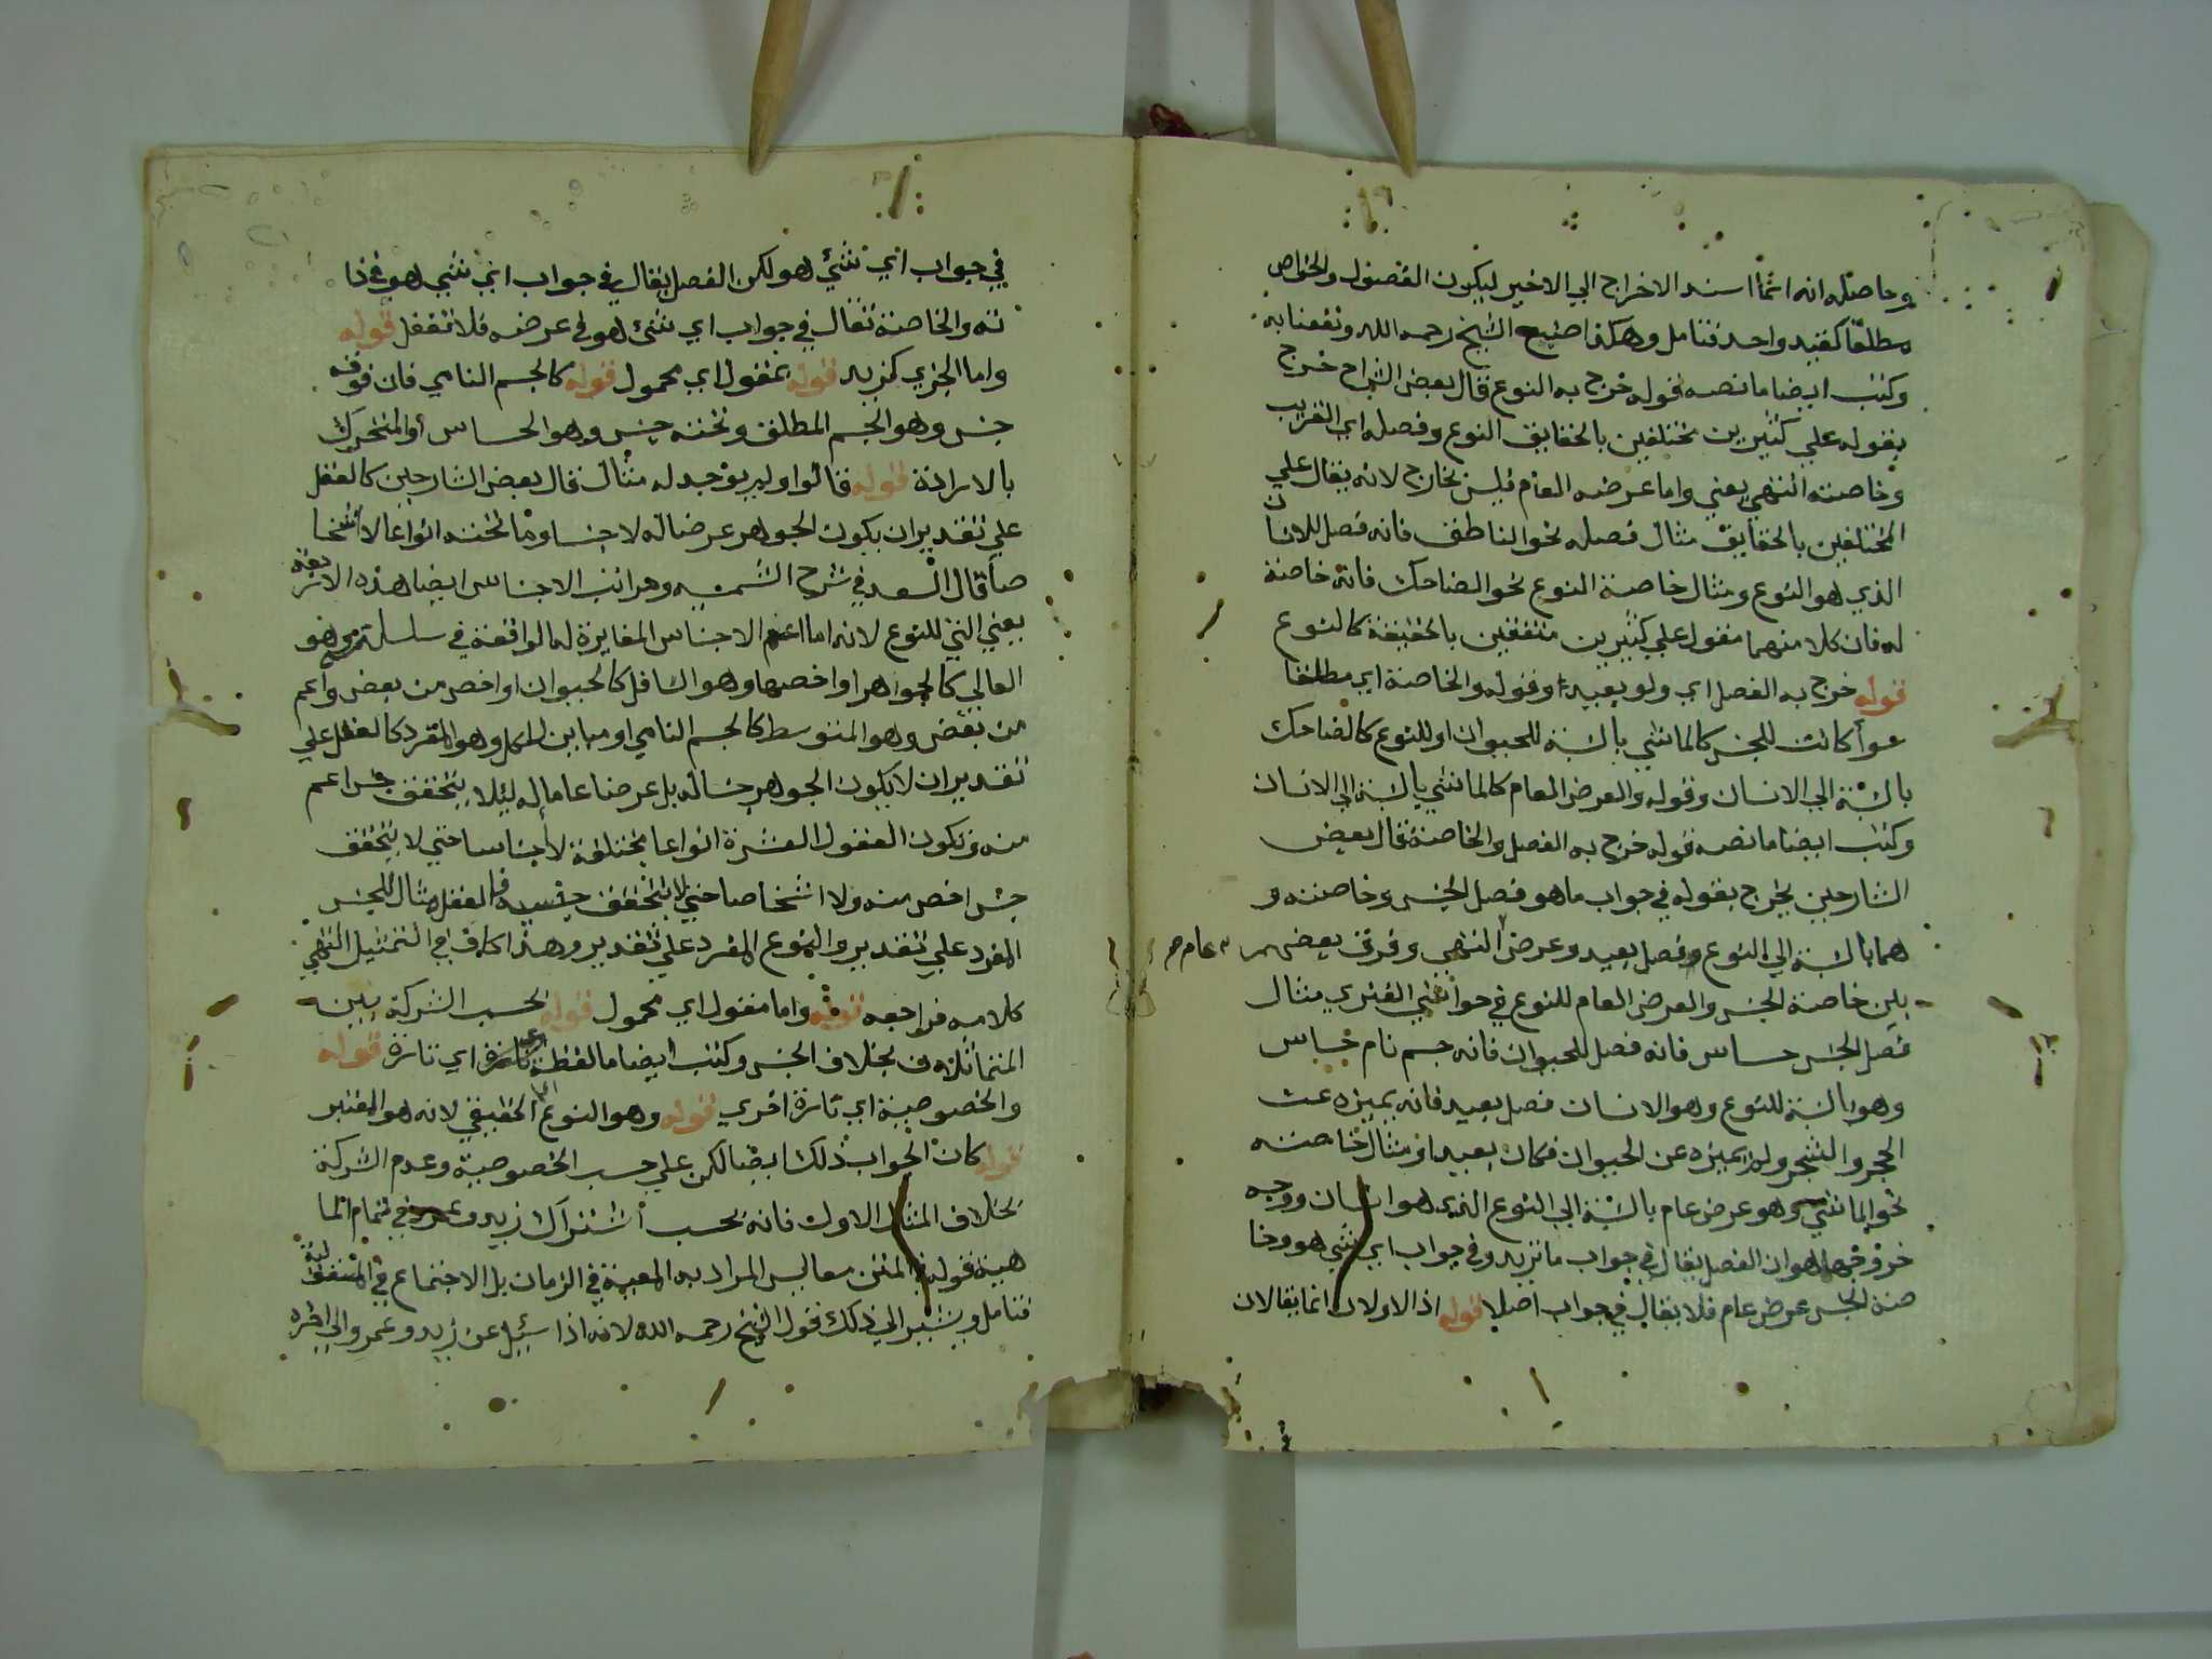 وحاصله انه انما اسند الاخراج الي الاخير ليكون الفصول والخواص
مطلقا كقيد واحد فتامل وهكذا اصنيع الشيخ رحمه الله ونفعنا به
وكتب ايضا ما نصه قوله خرج به النوع قال بعض الشراح خرج
بقوله علي كثيرين مختلفين بالحقايق النوع وفصله اي القريب
وخاصته انتهي يعني واما عرضه العام فليس بخارج لانه يقال علي
المختلفين بالحقايق مثال فصله نحو الناطق فانه فصل للانسان
الذي هو النوع ومثال خاصة النوع نحو الضاحك فانه خاصة
له فان كلا منهما مقول علي كثيرين متفقين بالحقيقة كالنوع
قوله خرج به الفصل اي ولو بعيدا وقوله والخاصة اي مطلقا
سوأ كانت للجنس كالماشي بالنسبة للحيوان او للنوع كالضاحك
بالنسبة الي الانسان وقوله والعرض العام كالماشي بالنسبة الي الانسان
وكتب ايضا ما نصه قوله خرج به الفصل والخاصة قال بعض
الشارحين يخرج بقوله في جواب ما هو فصل الجنس وخاصته و
هما بالنسبة الي النوع فصل بعيد وعرض انتهي وفرق بعضهم عام صح
بين خاصة الجنس والعرض العام للنوع في حواشي الفنري مثال
فصل الجنس حساس فانه فصل للحيوان فانه جسم نام حساس
وهو بالنسبة للنوع وهو الانسان فصل بعيد فانه يميزه عن
الحجر والشجر ولم يميزه عن الحيوان فكان بعيدا ومثال خاصته
نحو الماشي وهو عرض عام بالنسبة الي النوع الذي هو انسان ووجه
خروجهما هو ان الفصل يقال في جواب ما تريد وفي جواب اي شي هو وخا
صة الجنس عرض عام فلا يقال في جواب اصلا قوله اذ الاولان انما يقالان
في جواب اي شئ هو لكن الفصل يقال في جواب اي شي هو في ذا
ته والخاصة تقال في جواب اي شئ هو في عرضه فلا تغفل قوله
واما الجزي كزيد قوله بمقول اي محمول قوله كالجسم النامي فان فوقه
جنس وهو الجسم المطلق وتحته جنس وهو الحساس او المتحرك
بالارادة قوله قالوا ولم يوجد له مثال قال بعض الشارحين كالعقل
علي تقدير ان يكون الجوهر عرضا له لا جنسا وما تحته انواعا لا اشخا
صا قال السعد في شرح الشمسية ومراتب الاجناس ايضا هذه الاربعة
يعني التي للنوع لانه اما اعم الاجناس المغايرة له الواقعة في سلسلة وهو
العالي كالجواهر او اخصها وهو السافل كالحيوان او اخص من بعض واعم
من بعض وهو المتوسط كالجسم النامي او مباين للكل وهو المفرد كالعقل علي
تقدير ان لا يكون الجوهر جنسا له بل عرضا عاما له ليلا يتحقق جنس اعم
منه وتكون العقول العشرة انواعا مختلفة لا اجناسا حتي لا يتحقق
جنس اخص منه ولا اشخاصا حتي لا يتحقق جنسيه فالعقل مثال للجنس
المفرد علي تقدير والنوع المفرد علي تقدير وهذا كاف في التمثيل انتهي
كلامه فراجعه قوله واما مقول اي محمول قوله بحسب الشركة بين
المتماثلات بخلاف الجنس وكتب ايضا ما لفظه اي تارة قوله
والخصوصية اي تارة اخري قوله وهو النوع الحقيقي لانه هو المعتبر
قوله كان الجواب ذلك ايضا لكن علي حسب الخصوصية وعدم الشركة
بخلاف المثال الاول فانه بحسب اشتراك زيد وعمرو في تمام الما
هية فقوله في المتن معا ليس المراد به المعية في الزمان بل الاجتماع في المقولية
فتامل ويشير الي ذلك قول الشيخ رحمه الله لانه اذا سئيل عن زيد وعمرو الي اخره